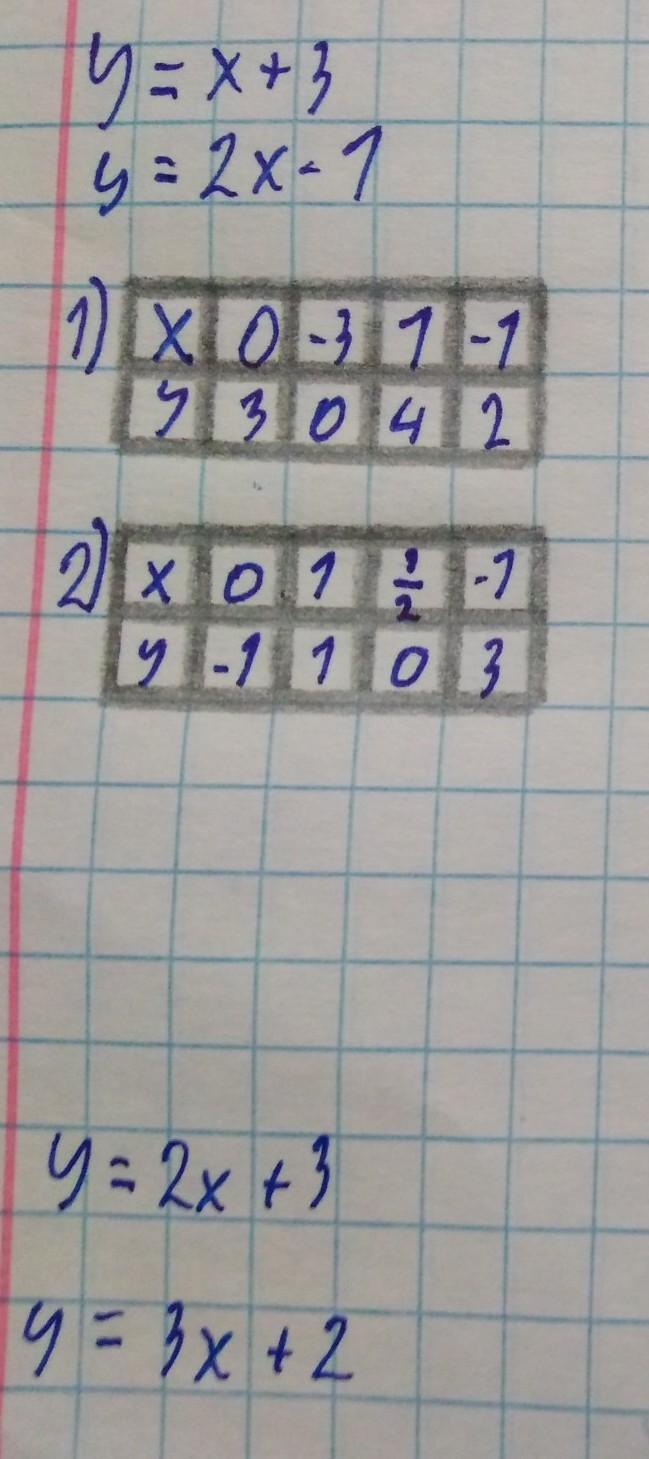 y = x + 3
y = 2x - 1
1) x 0 -3 1 -1
y 3 0 4 2
2) x 0 1 1/2 -1
y -1 1 0 3
y = 2x + 3
y = 3x + 2